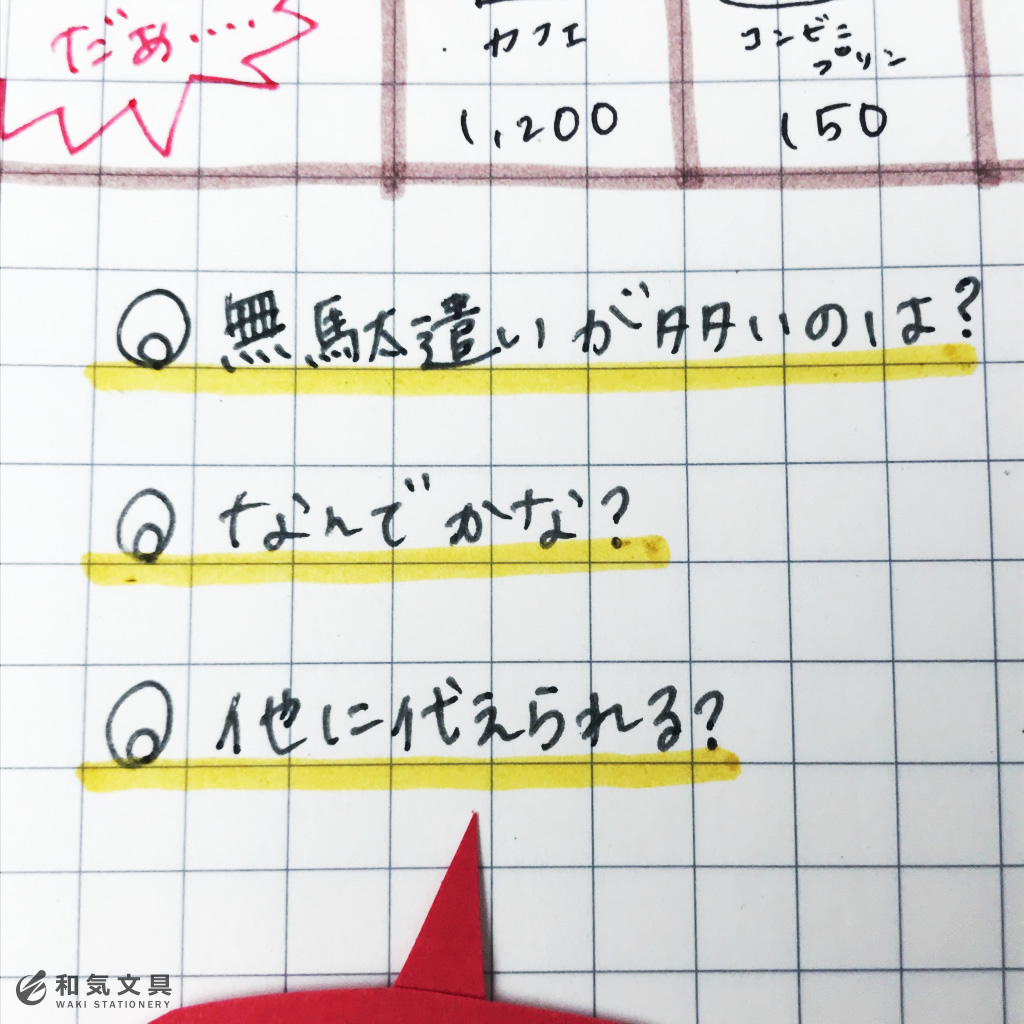 だぁ‥‥
カフェ
1,200
コンビニ
プリン
150
Q 無駄遣いが多いのは?
Q なんでかな?
Q 他に代えられる?
和気文具
WAKI STATIONERY